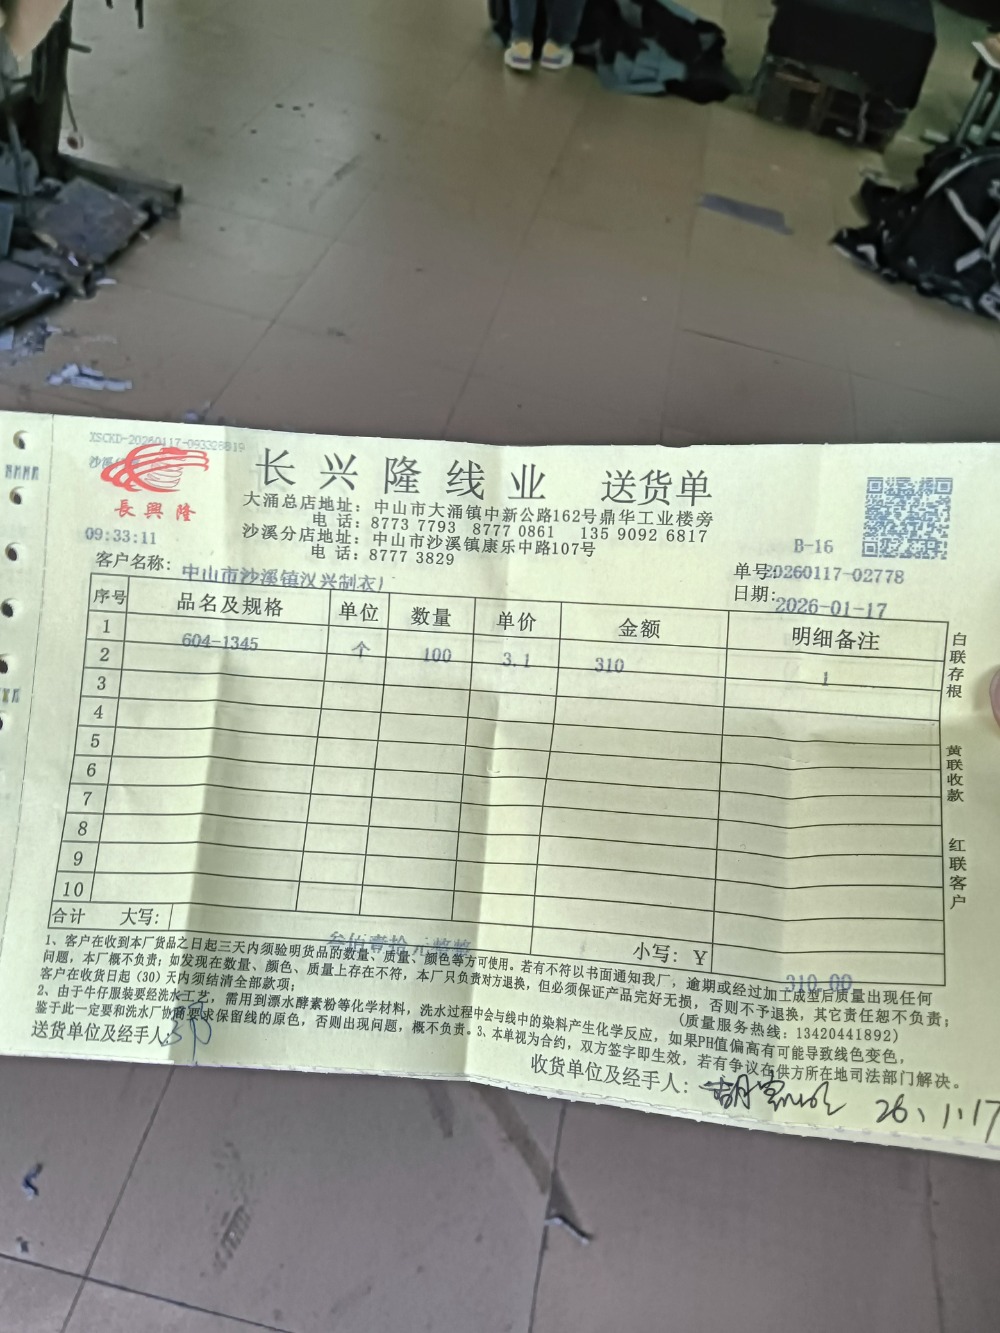 XSCKD-20260117-093328819
長興隆
长兴隆线业 送货单
大涌总店地址：中山市大涌镇中新公路162号鼎华工业楼旁
电 话：8773 7793 8777 0861 135 9092 6817
沙溪分店地址：中山市沙溪镇康乐中路107号
电 话：8777 3829
09:33:11
B-16
客户名称：中山市沙溪镇汉兴制衣厂
单号：20260117-02778
日期：2026-01-17
序号 品名及规格 单位 数量 单价 金额 明细备注
1 604-1345 个 100 3.1 310 1
2
3
4
5
6
7
8
9
10
合计 大写：叁佰壹拾元整 小写：￥ 310.00
白联存根 黄联收款 红联客户
1、客户在收到本厂货品之日起三天内须验明货品的数量、质量、颜色等方可使用。若有不符以书面通知我厂，逾期或经过加工成型后质量出现任何
问题，本厂概不负责；如发现在数量、颜色、质量上存在不符，本厂只负责对方退换，但必须保证产品完好无损，否则不予退换，其它责任恕不负责；
客户在收货日起（30）天内须结清全部款项； （质量服务热线：13420441892）
2、由于牛仔服装要经洗水工艺，需用到漂水酵素粉等化学材料，洗水过程中会与线中的染料产生化学反应，如果PH值偏高有可能导致线色变色，
鉴于此一定要和洗水厂协商要求保留线的原色，否则出现问题，概不负责。3、本单视为合约，双方签字即生效，若有争议在供方所在地司法部门解决。
送货单位及经手人
收货单位及经手人： 26.1.17